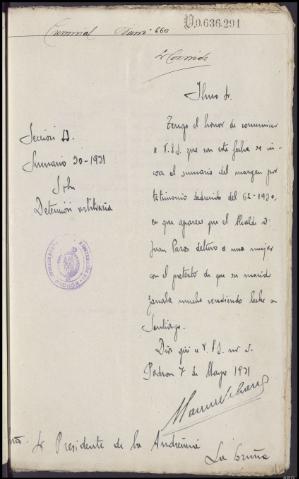 D9.636.291
Criminal Num: 660
Ilmo Sr.
Tengo el honor de comunicar
a V.S.I. que con esta fecha se in-
coa el sumario del margen por
testimonio deducido del 62-1930,
en que aparece que el Alcalde D.
Juan detuvo a una mujer
con el pretexto de que su marido
ganaba mucho vendiendo leche en
Santiago.
Dios gûe a V.S.I. m. a.
Padron 7 de Mayo 1931
Sección
Sumario 30-1931
Sobre
Detención arbitraria
Presidente de la Audiencia
La Coruña